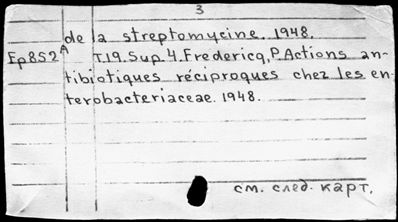 3
de la streptomycine. 1948.
Ep852A T.19.Sup.4.Fredericq,P.Actions an-
tibiotiques réciproques chez les en-
terobacteriaceae. 1948.
см. след. карт.